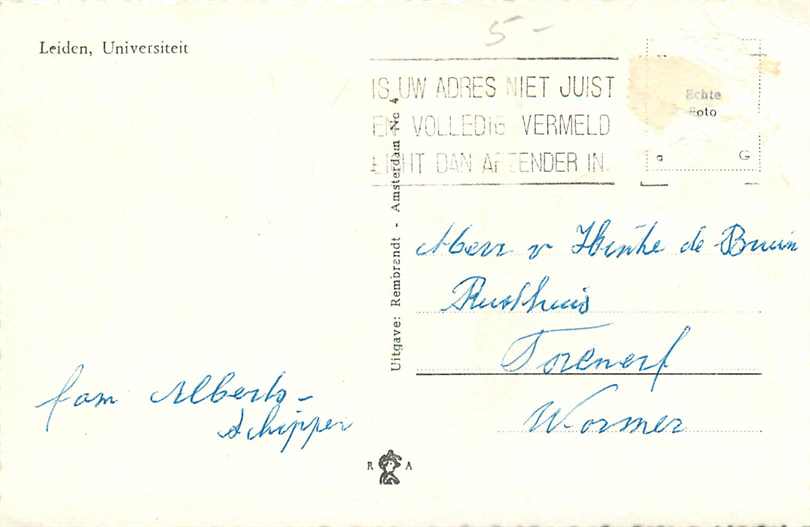 Leiden, Universiteit
5-
IS UW ADRES NIET JUIST
EN VOLLEDIG VERMELD
LICHT DAN AFZENDER IN.
Echte
Foto
a G
Uitgave: Rembrandt - Amsterdam No 4
Mevr v Hinke de Bruin
Rusthuis
Torenerf
Wormer
fam Alberts-
Schipper
R A